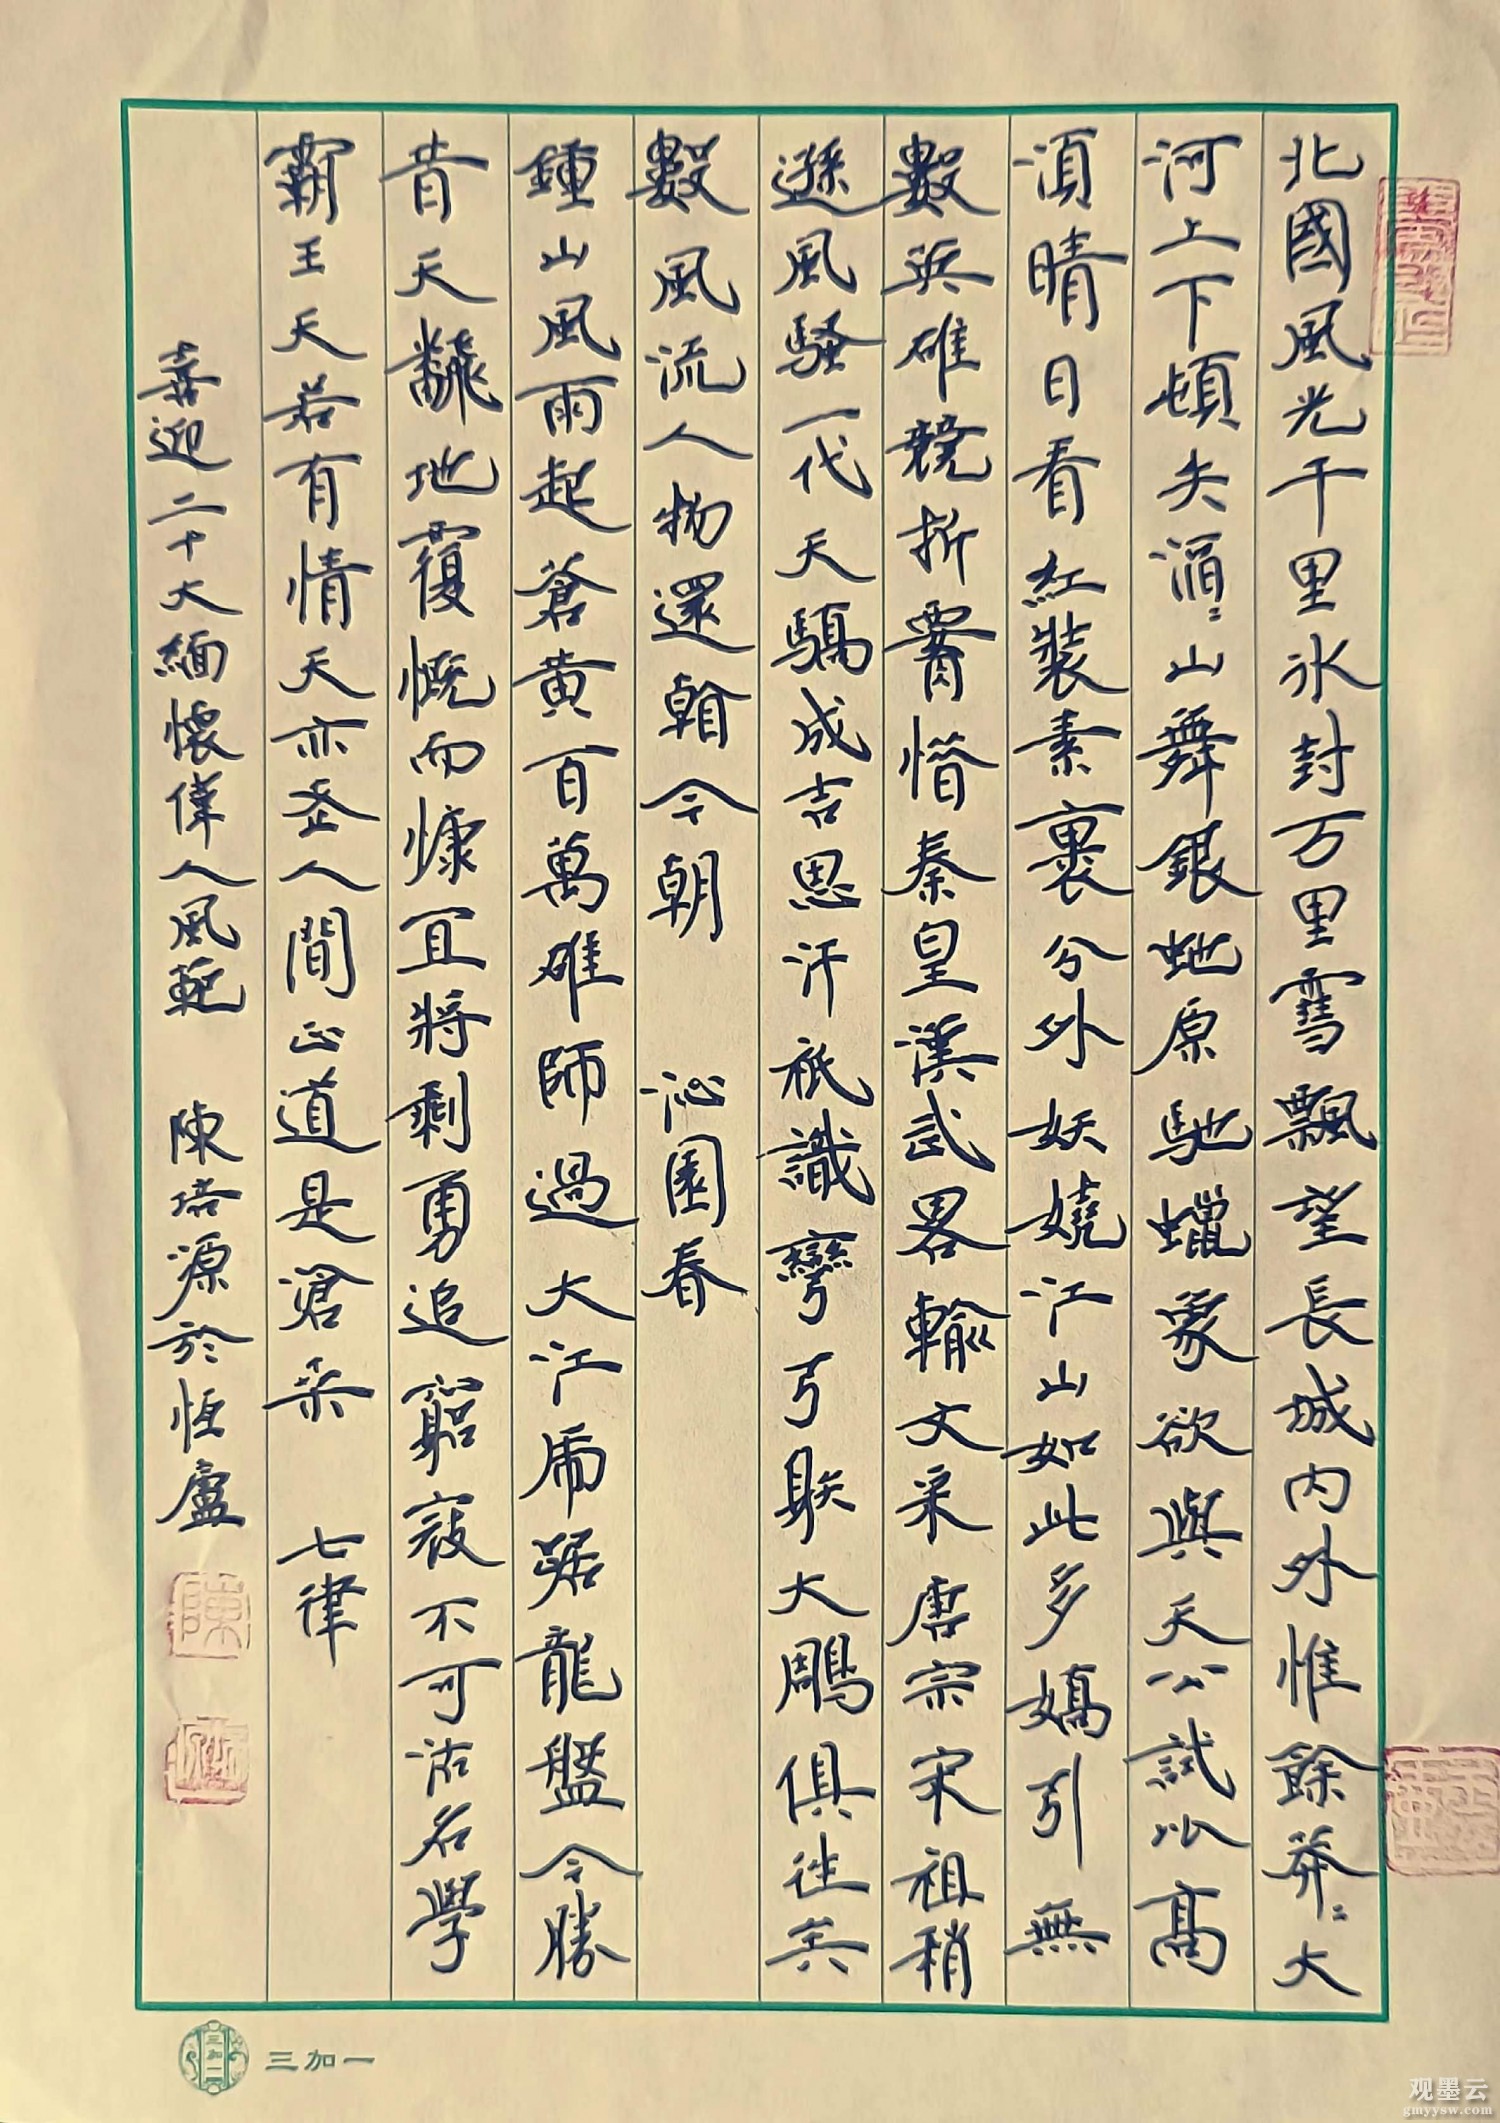 北國風光千里氷封万里雪飄望長城内外惟餘莽〻大
河上下頓失滔〻山舞銀虵原馳蠟象欲與天公試比高
須晴日看紅裝素裹分外妖嬈江山如此多嬌引無
數英雄競折腰惜秦皇漢武畧輸文采唐宗宋祖稍
遜風騷一代天驕成吉思汗祇識彎弓射大鵰俱往矣
數風流人物還看今朝 沁園春
鍾山風雨起蒼黄百萬雄師過大江虎踞龍盤今勝
昔天翻地覆慨而慷宜將剩勇追窮寇不可沽名學
霸王天若有情天亦老人間正道是滄桑 七律
喜迎二十大緬懷偉人風範 陳培源於恒盧
陳
三加一
观墨云
gmyysw.com